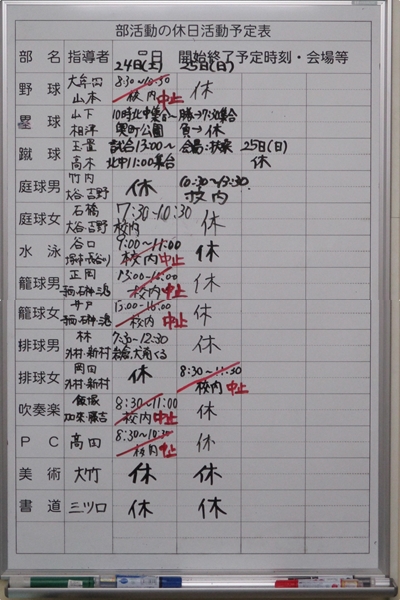 部活動の休日活動予定表
部名 指導者 日 開始終了予定時刻・会場等
24日(土) 25日(日)
野球 大牟田 8:30～ 休
山本 校内 中止
塁球 山下 10時北中集合～ 勝→7:30集合
相澤 奥町公園 負→休
蹴球 玉置 試合13:00～ 会場:扶桑 25日(日)
高木 北中11:00集合 休
庭球男 竹内 休 10:30～13:30
大谷・吉野 校内
庭球女 石橋 7:30～10:30 休
大谷・吉野 校内
水泳 谷口 9:00～11:00 休
校内 中止
籠球男 正岡 13:00～16:00 休
校内 中止
籠球女 13:00～16:00 休
校内 中止
排球男 林 7:30～12:30 休
外村・新村
排球女 岡田 休 8:30～11:30
外村・新村 校内 中止
吹奏楽 飯塚 8:30～11:00 休
加来・藤吉 校内 中止
PC 高田 8:30～10:30 休
校内 中止
美術 大竹 休 休
書道 三ツ口 休 休